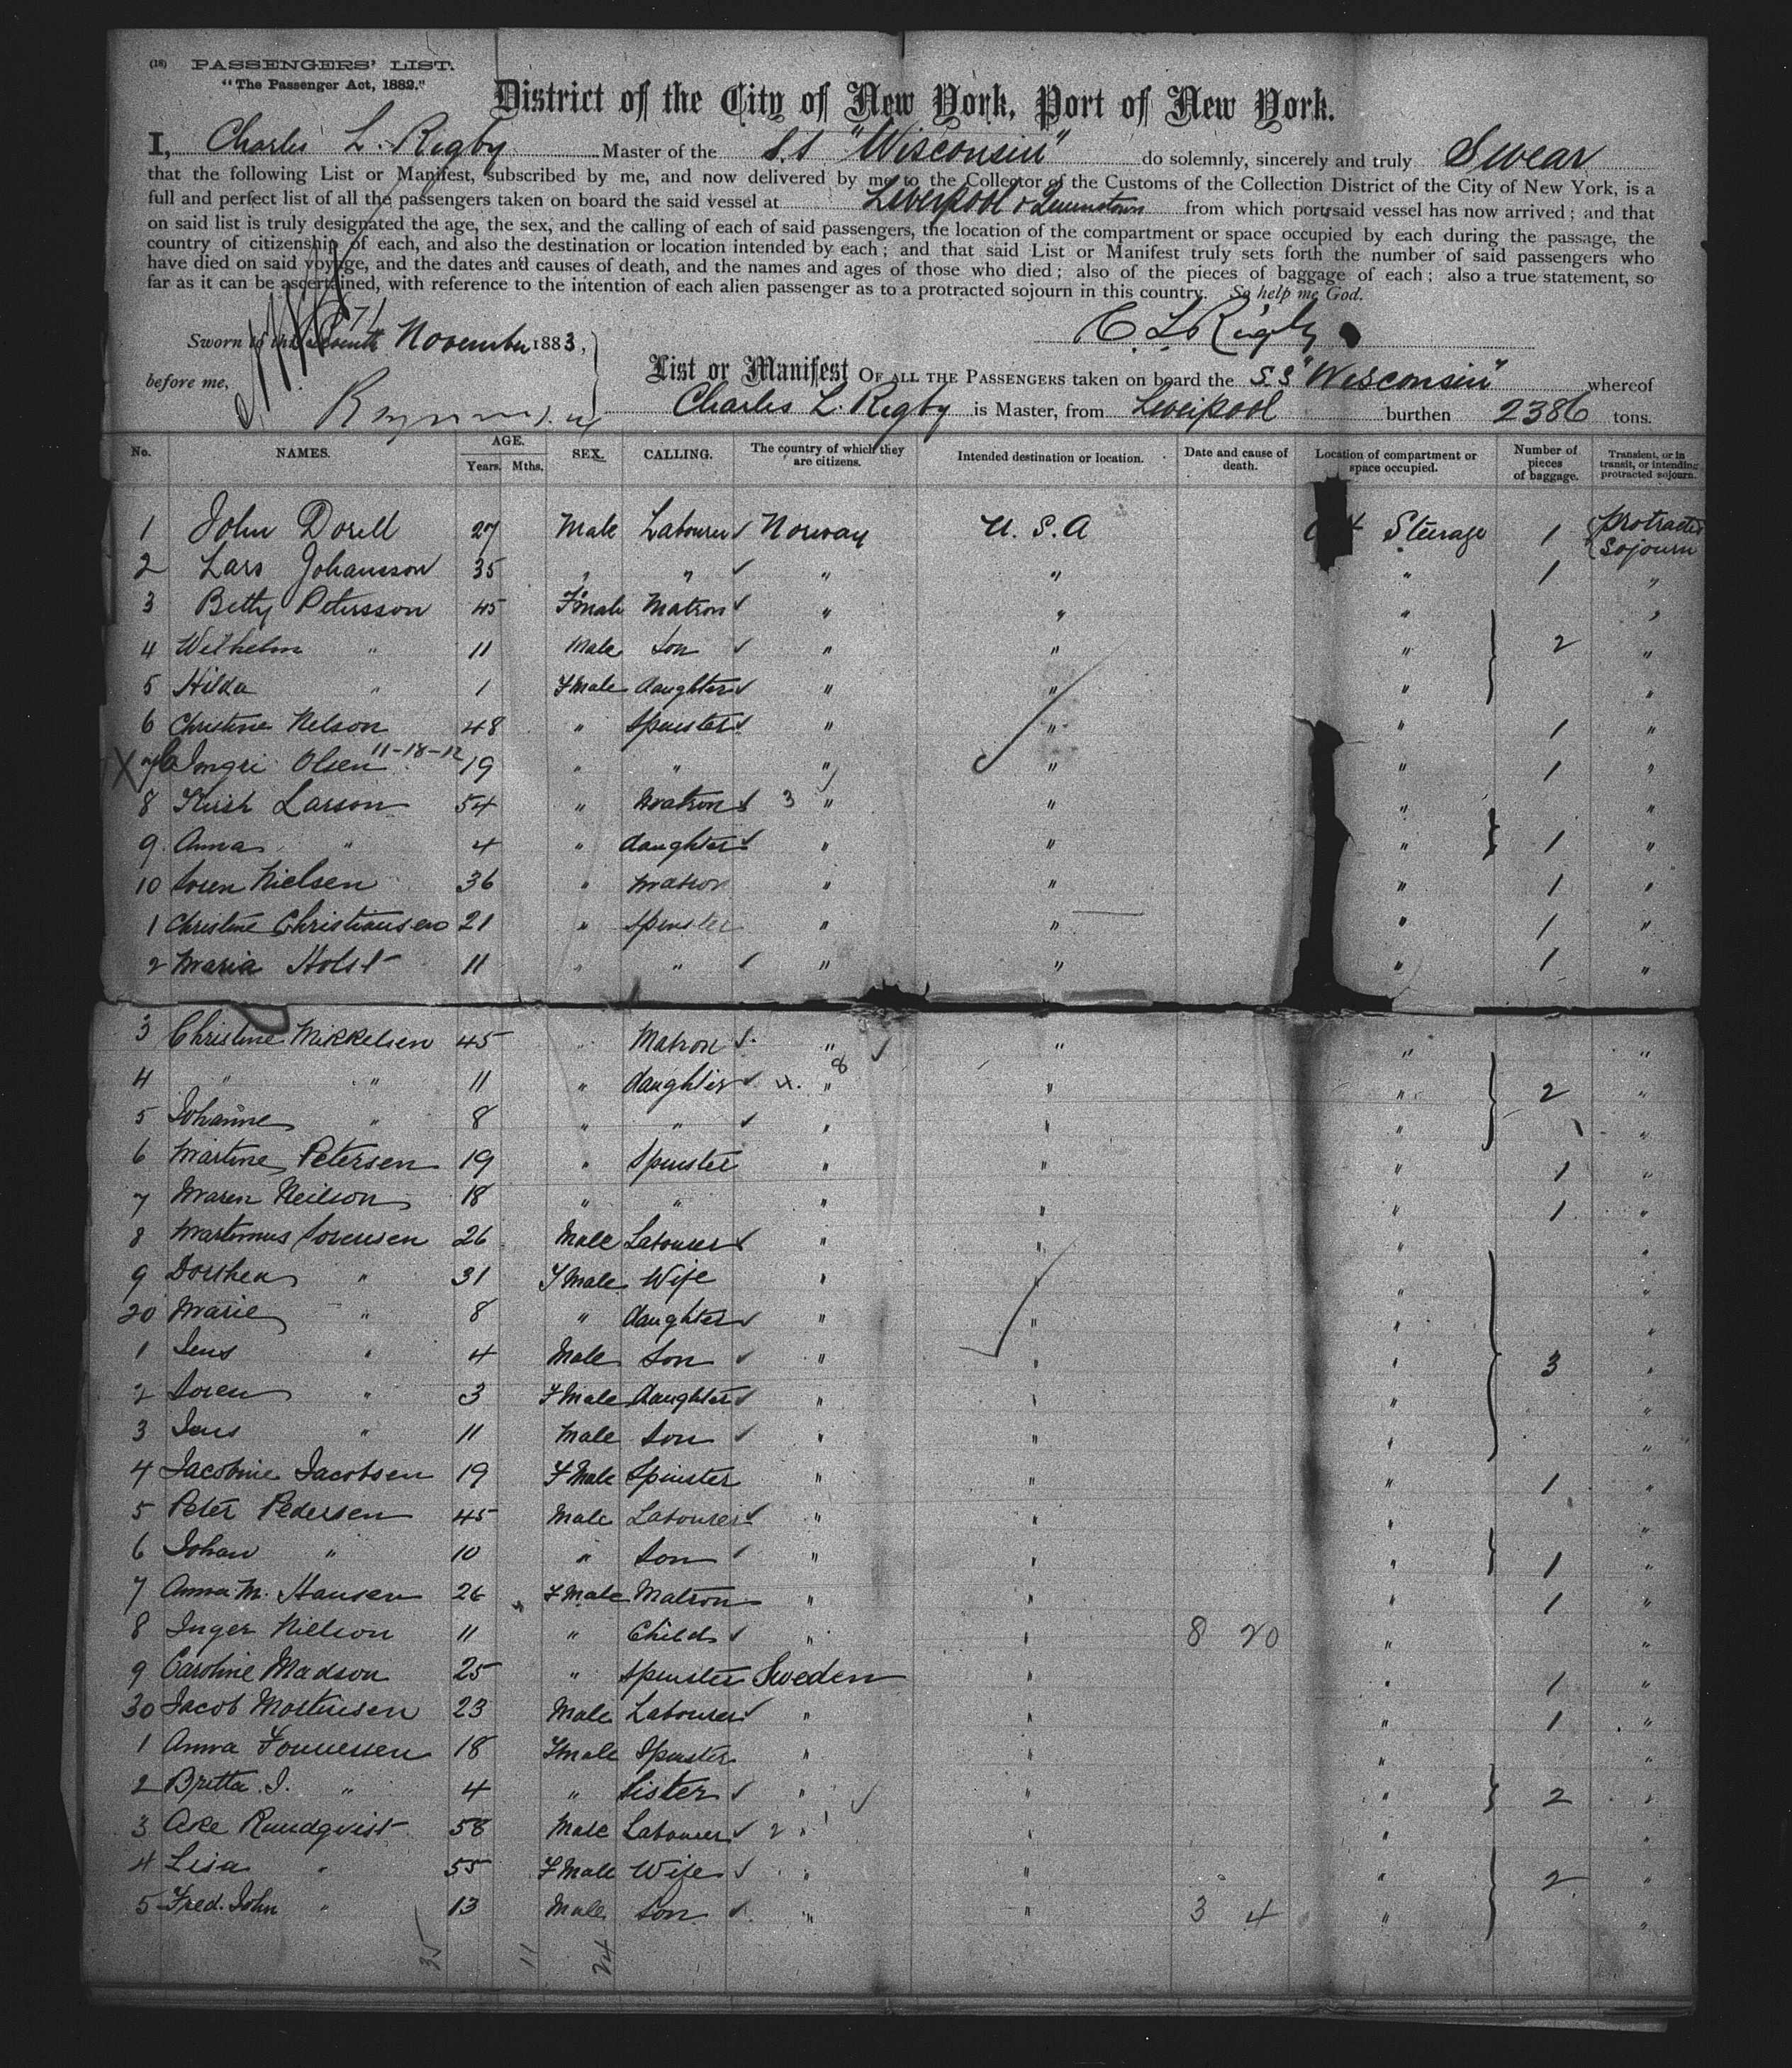 (18) PASSENGERS' LIST.
"The Passenger Act, 1882."
District of the City of New York, Port of New York.
I, Charles L. Rigby Master of the S.S "Wisconsin" do solemnly, sincerely and truly Swear
that the following List or Manifest, subscribed by me, and now delivered by me to the Collector of the Customs of the Collection District of the City of New York, is a
full and perfect list of all the passengers taken on board the said vessel at Liverpool & Queenstown from which port said vessel has now arrived; and that
on said list is truly designated the age, the sex, and the calling of each of said passengers, the location of the compartment or space occupied by each during the passage, the
country of citizenship of each, and also the destination or location intended by each; and that said List or Manifest truly sets forth the number of said passengers who
have died on said voyage, and the dates and causes of death, and the names and ages of those who died; also of the pieces of baggage of each; also a true statement, so
far as it can be ascertained, with reference to the intention of each alien passenger as to a protracted sojourn in this country. So help me God.
Sworn to this November 1883, C. L. Rigby
before me,
List or Manifest OF ALL THE PASSENGERS taken on board the S.S "Wisconsin" whereof
Charles L. Rigby is Master, from Liverpool burthen 2386 tons.
No. NAMES. AGE. Years. Mths. SEX. CALLING. The country of which they are citizens. Intended destination or location. Date and cause of death. Location of compartment or space occupied. Number of pieces of baggage. Transient, or in transit, or intending protracted sojourn.
1 John Dorell 27 Male Labourer Norway U.S.A Steerage 1 Protracted Sojourn
2 Lars Johansson 35 " " " " " 1 "
3 Betty Petersson 45 Fmale Matron " " " "
4 Wilhelm " 11 Male Son " " " 2 "
5 Hilda " 1 Fmale daughter " " " "
6 Christine Nelson 48 " Spinster " " " 1 "
X 7 Ingri Olsen 11-18-12 19 " " " " " 1 "
8 Larson 54 " Matron 3 " " " "
9 Anna " 4 " daughter " " " 1 "
10 Soren Nielsen 36 " Matron " " " 1 "
1 Christine Christiansen 21 " Spinster " " " 1 "
2 Maria Holst 11 " " " " " 1 "
3 Christine Mikkelsen 45 " Matron " " " "
4 " " 11 " daughter 4. " 8 " " 2 "
5 Johanne " 8 " " " " " "
6 Martine Petersen 19 " Spinster " " " 1 "
7 Maren Neilson 18 " " " " " 1 "
8 Martinus Sorensen 26 Male Labourer " " " "
9 Dorthea " 31 Fmale Wife " " " "
20 Marie " 8 " daughter " " " "
1 Jens " 4 Male Son " " " 3 "
2 Soren " 3 Fmale daughter " " " "
3 Jens " 11 Male Son " " " "
4 Jacobine Jacobsen 19 Fmale Spinster " " " 1 "
5 Peter Pedersen 45 Male Labourer " " " "
6 Johan " 10 " Son " " " 1 "
7 Anna M. Hansen 26 Fmale Matron " " " 1 "
8 Inger Nielson 11 " Child " " 8 20 " "
9 Caroline Madson 25 " Spinster Sweden " " 1 "
30 Jacob Mortensen 23 Male Labourer " " " 1 "
1 Anna 18 Fmale Spinster " " " "
2 Britta J. " 4 " Sister " " " 2 "
3 Ake Rundqvist 58 Male Labourer 2 " " " "
4 Lisa " 55 Fmale Wife " " " 2 "
5 Fred. John " 13 Male Son " " 3 4 " "
35 11 24